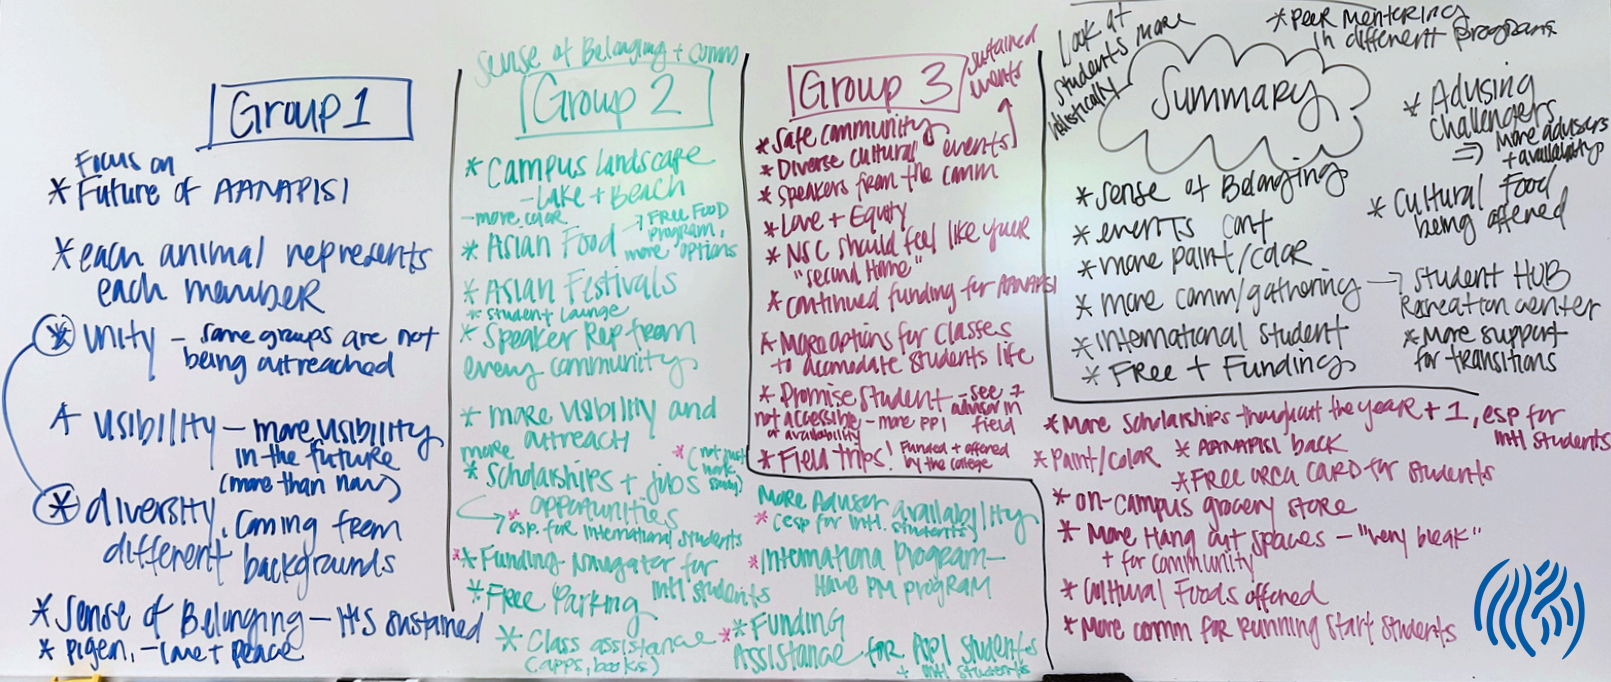 Group 1
Focus on
* Future of AANAPISI
* each animal represents
each member
* Unity - some groups are not
being outreached
* Visibility - more visibility
in the future
(more than now)
* diversity, coming from
different backgrounds
* Sense of Belonging - It's sustained
* pigen, - love + peace
Sense of Belonging + comm
Group 2
* Campus landscape
- Lake + Beach
- more color
* Asian Food → Free Food
program,
more options
* Asian Festivals
* Student Lounge
* Speaker Rep from
every community
* more visibility and
outreach
more
* Scholarships + jobs
* (not just
work
study)
opportunities
→ * esp. for international students
* Funding Navigator for
intl students
* Free Parking
* Class assistance
(apps, books)
More Adviser availability
* (esp for intl. students)
* International Program -
Have PM program
* * Funding
Assistance for AAPI students
+ intl students
Group 3
sustained
events
* Safe community
* Diverse cultural events
* Speakers from the comm
* Love + Equity
* NSC should feel like your
"second Home"
* continued funding for AANAPISI
* More options for classes
to acomodate students life
* Promise Student - see ?
advisor in
field
not accessible - more PPl
of availability
* Field trips! Funded + offered
by the college
Look at
students more
holistically
Summary
* Peer Mentoring
in different programs
* Sense of Belonging
* events cont
* more paint/color
* more comm/gathering → Student HUB
Recreation center
* international student
* Free + Funding
* Advising
challengers
⇒ More advisors
+ availability
* Cultural Food
being offered
* More support
for transitions
* More Scholarships thoughout the year + 1, esp for
intl students
* Paint/color
* AANAPISI back
* Free orca card for students
* on-campus grocery store
* More Hang out spaces - "very bleak"
+ for community
* Cultural Foods offered
* More comm for Running Start students